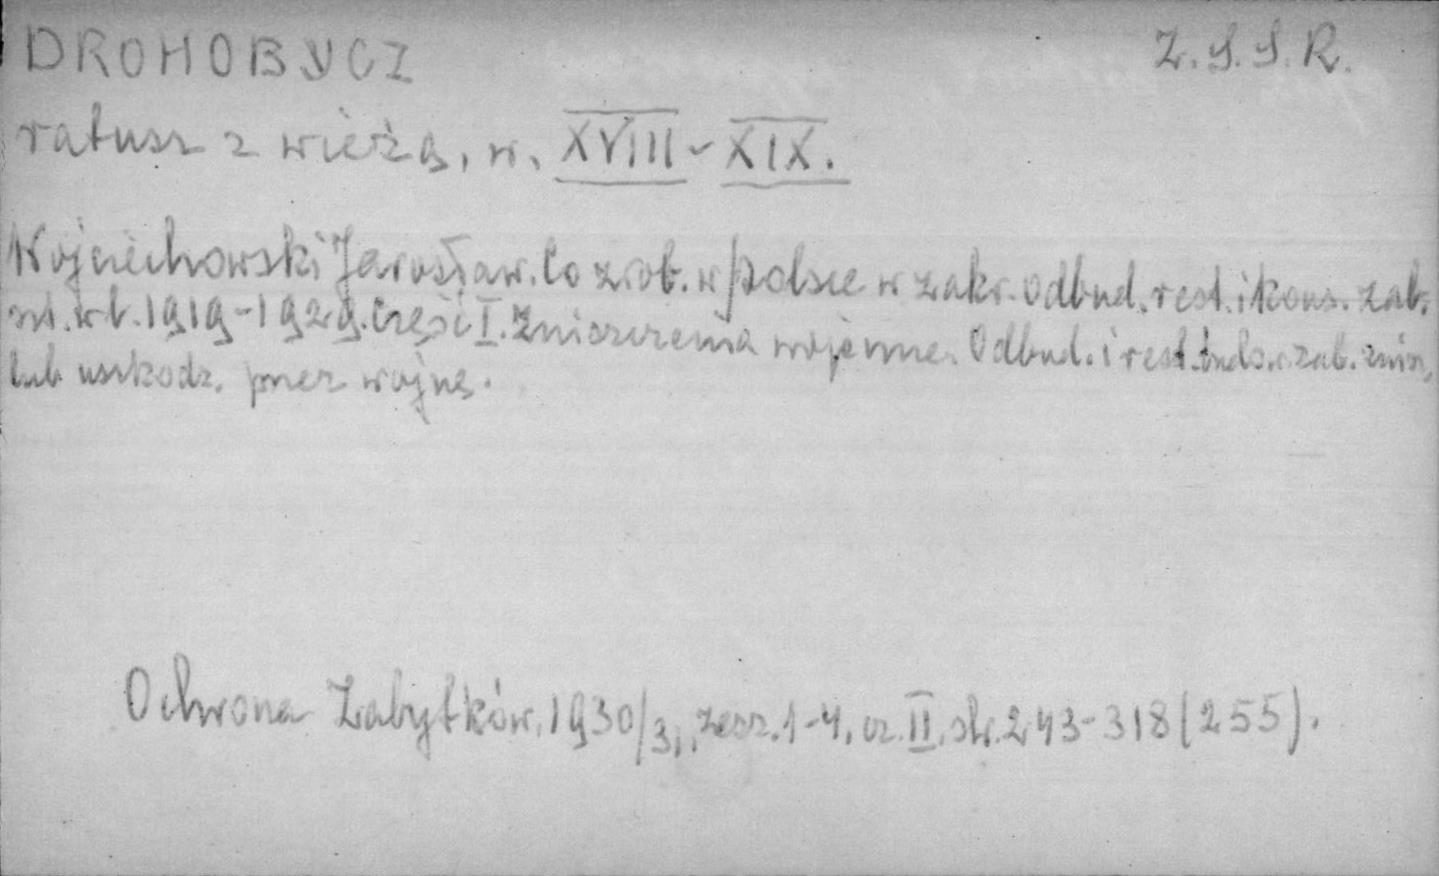 DROHOBYCZ Z.S.S.R.
ratusz z wieżą, w. XVIII-XIX.
Wojciechowski Jarosław. Co zrob. w Polsce w zakr. odbud. rest. i kons. zab.
szt. w l. 1919-1929. Część I. Zniszczenia wojenne. Odbud. i rest. budow. zab. znisz.
lub uszkodz. przez wojnę.
Ochrona Zabytków, 1930/3, zesz. 1-4, cz. II, str. 243-318 (255).